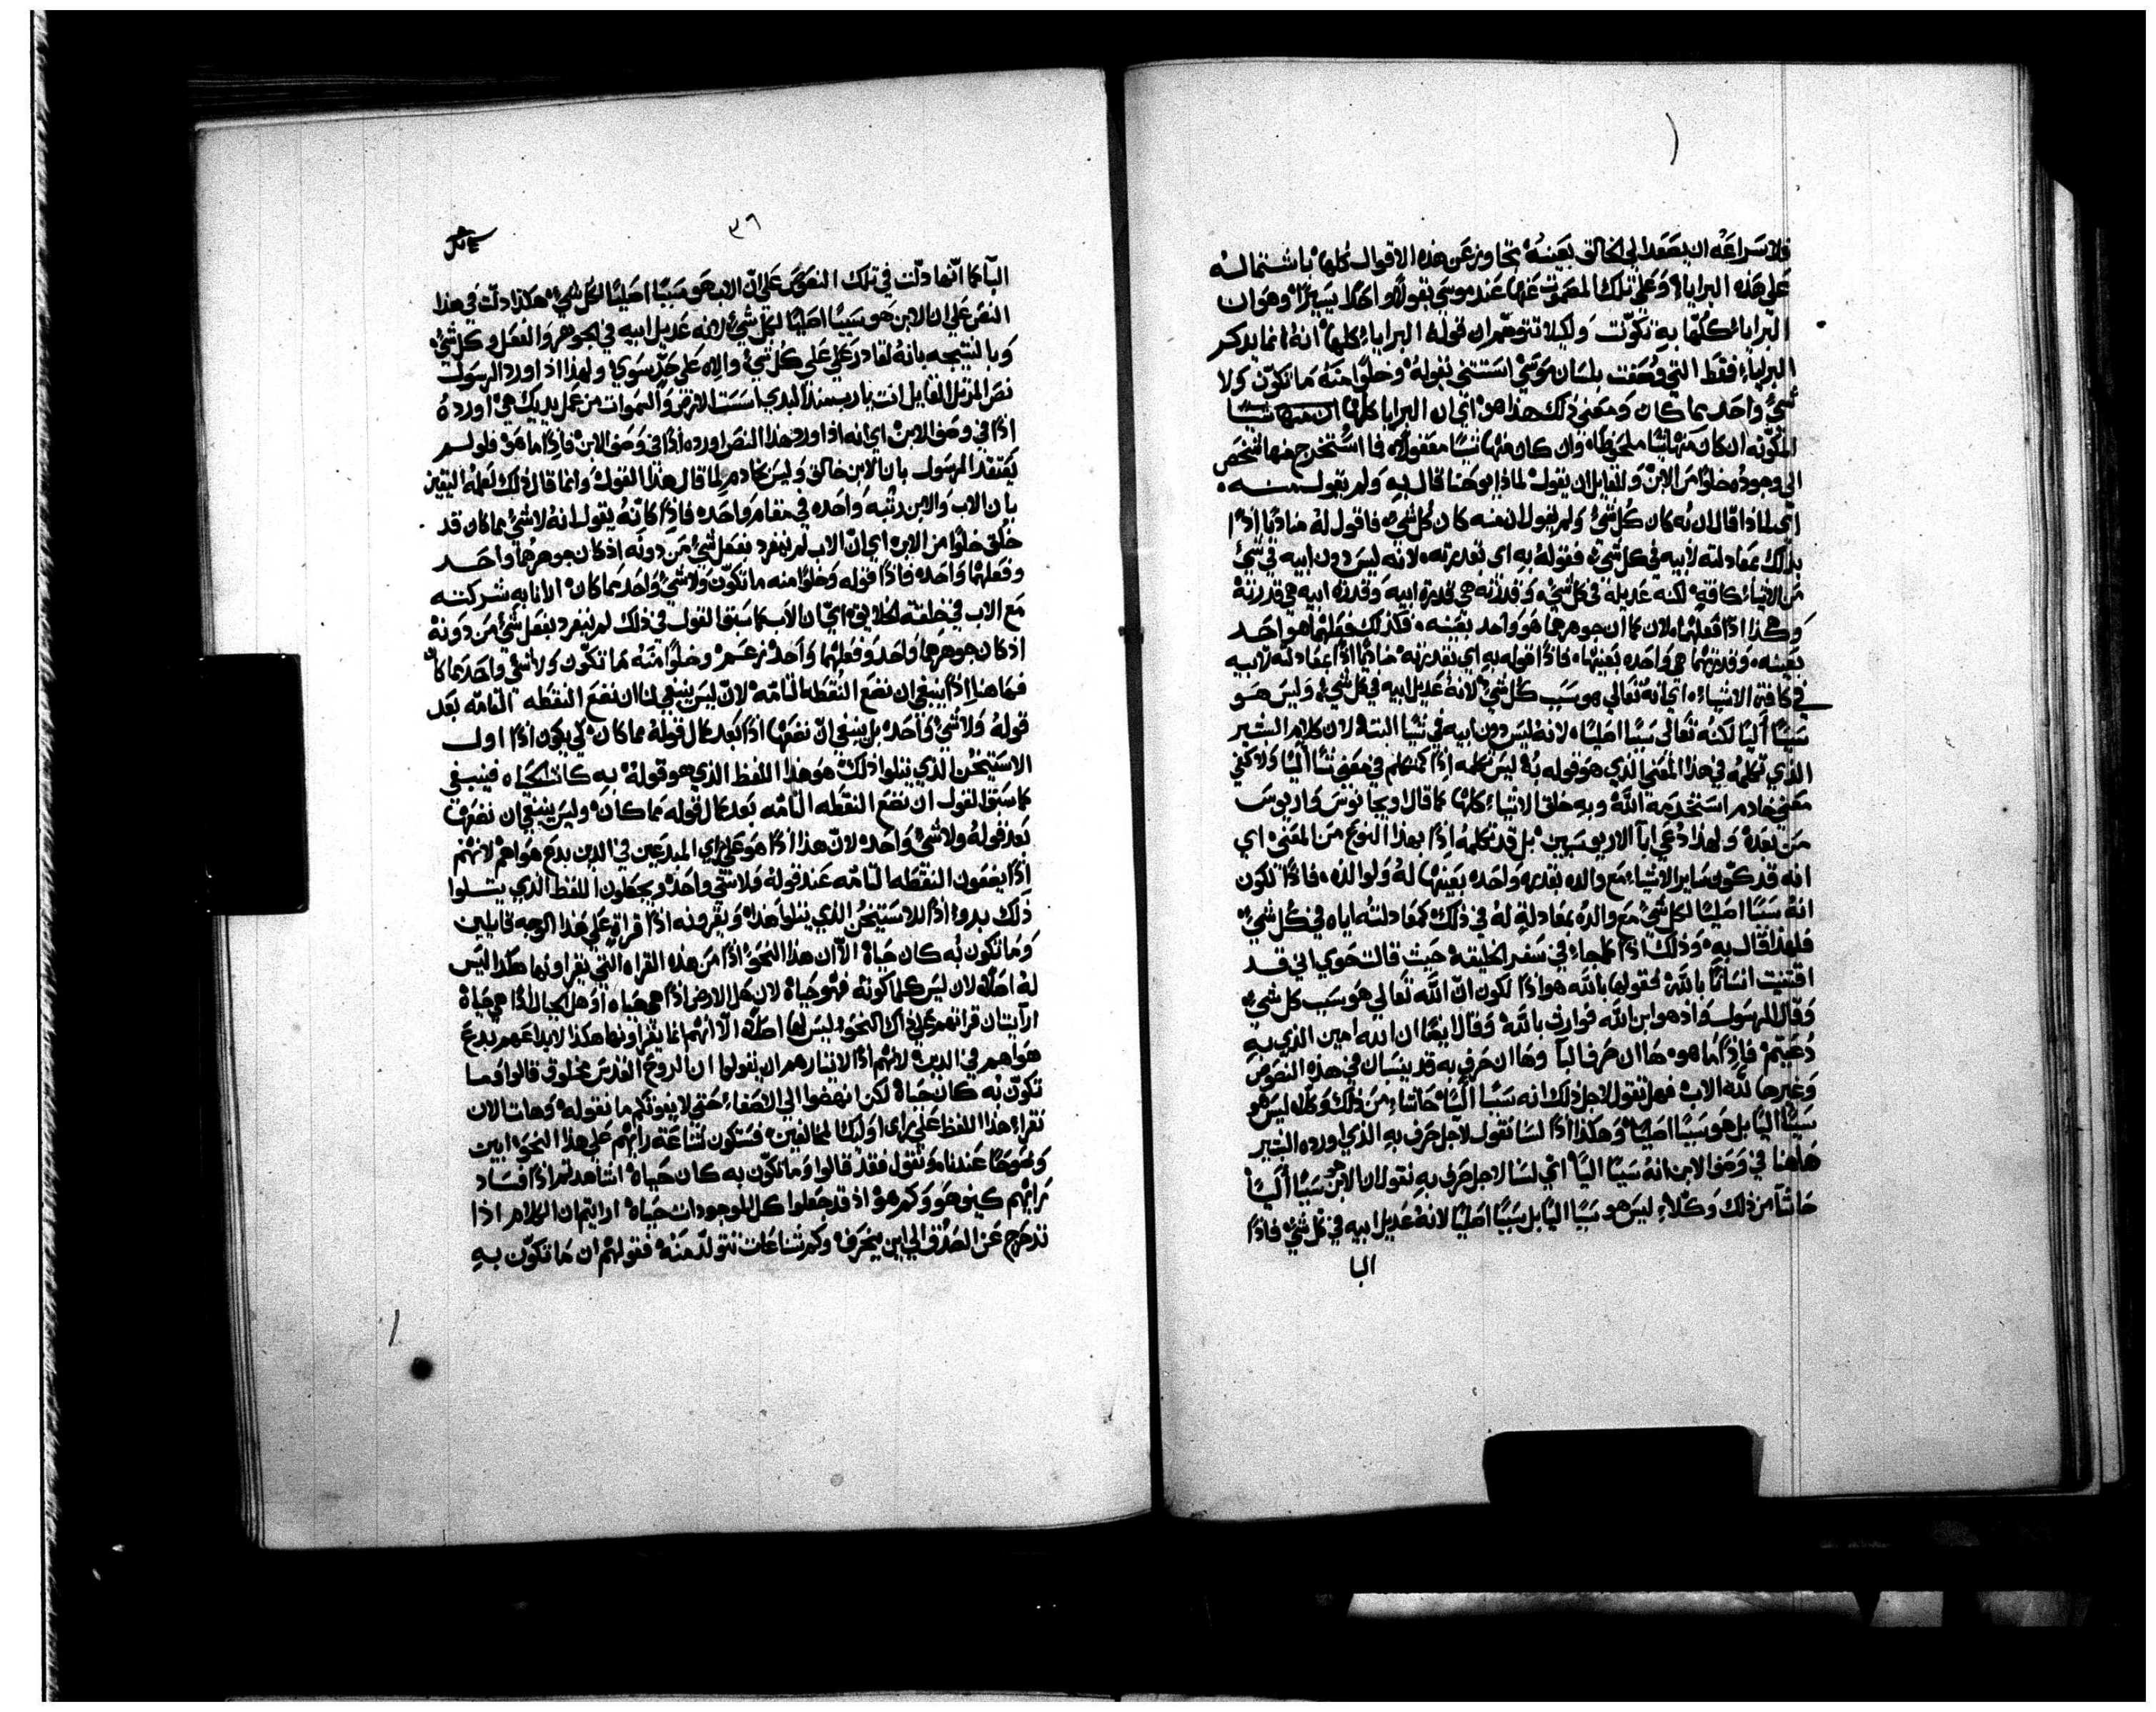 فلاسراعه ان يصعد الى الخالق بعينه تجاوز عن هذه الاقوال كلها باشتماله
على هذه البرايا وعلى تلك المصموت عنها عند موسى بقوله واحدا يسيرا وهو ان
البرايا كلها به تكونت ولكيلا تتوهم ان قوله البرايا كلها انه انما يذكر
البرايا فقط التي وصفت بلسان موسى استثنى بقوله وخلوا منه ما تكون ولا
شيء واحد مما كان ومعنى ذلك هذا هو اي ان البرايا كلها ان منها شيا
المكونه ان كان منها شيا ملحوظا وان كان منها شيا معقولا فما استخرج منها شخص
الى وجوده خلوا من الابن ولقايل ان يقول لماذا يوحنا قال به ولم يقول منه
اي لماذا قال ان به كان كل شيء ولم يقول ان منه كان كل شيء فاقول له مناديا اذا
بذلك بمعادلته لابيه في كل شيء فقوله به اي بقدرته لانه ليس دون ابيه في شيء
من الاشياء كافة لكنه عديله في كل شيء وقدرته هي قدرة ابيه وقدرة ابيه هي قدرته
وهكذا اذا فعلهما لان كما ان جوهرهما هو واحد بعينه فكذلك فعلهما هو واحد
بعينه وقدرتهما هي واحده بعينها فاذا قوله به اي بقدرته مناديا اذا بمعادلته لابيه
في كافة الاشياء اي انه تعالى هو سبب كل شيء لانه عديل ابيه في كل شيء وليس هو
سببا اليا لكنه تعالى سببا اصليا لانه ليس دون ابيه في شيا البتة لان كلام البشير
الذي تكلمه في هذا المعنى الذي هو قوله به ليس تكلمه اذا كمتكلم في معنى شيا اليا ولا كفي
معنى خادم استخدمه الله وبه خلق الاشياء كلها كما قال اوريجانوس واريوس
من بعده ولهذا دعي ابا الاريوسيين بل قد تكلمه اذا بهذا النوع من المعنى اي
انه قد كون ساير الاشياء مع والده بقدره واحده بعينها له ولوالده فاذا تكون
انه سببا اصليا لكل شيء مع والده بمعادلة له في ذلك كمعادلته اياه في كل شيء
فلهذا قال به وذلك اذا كما جاء في سفر الخليقة حيث قالت حوي اني قد
اقتنيت انسانا بالله فقولها بالله هو اذا لكون ان الله تعالى هو سبب كل شيء
وقال الرسول واذ هو ابن الله فوارث بالله وقال ايضا ان الله امين الذي به
دعيتم فاذا ما هو ها ان حرف البا وها ان حرف به قد ينسبان في هذه النصوص
وغيرها لله الاب فهل نقول لاجل ذلك انه سببا اليا حاشا من ذلك وكلا ليس هو
سببا اليا بل هو سببا اصليا وهكذا اذا لسنا نقول لاجل حرف به الذي اورده البشير
هاهنا في وصف الابن انه سببا اليا اي لسنا لاجل حرف به نقول ان الابن هو سببا اليا
حاشا من ذلك وكلا ليس هو سببا اليا بل سببا اصليا لانه عديل ابيه في كل شيء فاذا
البا
٣٦
البا كما انها دلت في تلك النصوص على ان الاب هو سببا اصليا لكل شيء هكذا دلت في هذا
النص على ان الابن هو سببا اصليا لكل شيء لانه عديل ابيه في الجوهر والفعل وكل شيء
وبالنتيجه بانه لقادر علي على كل شيء واله على حد سوي ولهذا اذا اورد الرسول
نص المرتل القايل انت يا رب منذ البدي اسست الارض والسموات من عمل يديك هي اورده
اذا في وصف الابن اي انه اذا اورد هذا النص اورده اذا في وصف الابن فاذا ما هو فلو لم
يعتقد الرسول بان الابن خالق وليس خادم لما قال هذا القول وانما قال ذلك لعلمه اليقين
بان الاب والابن رتبه واحده في مقام واحده فاذا كانه يقول انه لا شيء مما كان قد
خلق خلوا من الابن اي ان الاب لم ينفرد بفعل شيء من دونه اذ كان جوهرهما واحد
وفعلهما واحده فاذا قوله وخلوا منه ما تكون ولا شيء واحد مما كان الا نابه شركته
مع الاب في خلقة الخلايق اي ان الاب كما سبق القول في ذلك لم ينفرد بفعل شيء من دونه
اذ كان جوهرهما واحد وفعلهما واحد وخلوا منه ما تكون ولا شيء واحد مما كان
فهاهنا اذا ينبغي ان نضع النقطه التامه لان ليس ينبغي لنا ان نضع النقطه التامه بعد
قوله ولا شيء واحد بل ينبغي ان نضعها اذا بعد كمال قوله مما كان كي يكون اذا اول
الاستيخن الذي يتلوا ذلك هو هذا اللفظ الذي هو قوله به كانت الحياه فينبغي
كما سبق القول ان نضع النقطه التامه بعد كمال قوله مما كان وليس ينبغي ان نضعها
بعد قوله ولا شيء واحد لان هذا اذا هو على راي المبدعين في الدين بدع هواهم لانهم
اذا يضعون النقطه التامه عند قوله ولا شيء واحد ويجعلون اللفظ الذي يتلوا
ذلك بدوا اذا للاستيخن الذي يتلوا هذا ويقرونه اذا قراة على هذا الوجه قايلين
وما تكون به كان حياة الا ان هذا النحو اذا من هذه القراه التي يقراونها هكذا ليس
له اصلا لان ليس كلما كونه فهو حياة لان هل الارض اذا هي حياه او هل الجبال اذا هي حياة
ارايت ان قراتهم على ذاك النحو ليس لها اصلا الا انهم انما يقراونها هكذا لابداعهم بدع
هواهم في الدين لانهم اذا الايثارهم ان يقولوا ان الروح القدس مخلوق قالوا وما
تكون به كان حياة لكن انهضوا الى الاصغاء حتى لا يفوتكم ما نقوله وهات الان
نقراء هذا اللفظ على راي اوليك المخالفين فستكون شناعة رايهم على هذا النحو ابين
وضوحا عندنا ونقول فقد قالوا وما تكون به كان حياة انشاهدتم اذا فساد
رايهم كيف هو وكم هو اذ قد جعلوا كل الموجودات حياة ارايتم ان الكلام اذا
تدحرج عن الصدق الى اين ينحرف وكم شناعات تتولد منه فقولهم ان ما تكون به